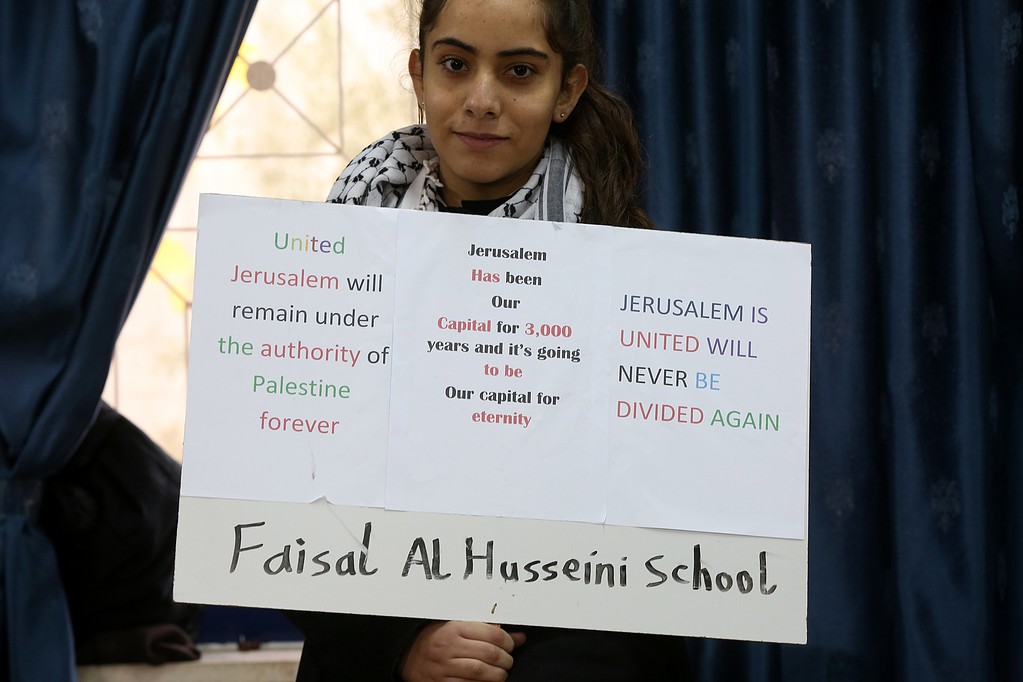 United
Jerusalem will
remain under
the authority of
Palestine
forever
Jerusalem
Has been
Our
Capital for 3,000
years and it's going
to be
Our capital for
eternity
JERUSALEM IS
UNITED WILL
NEVER BE
DIVIDED AGAIN
Faisal Al Husseini School